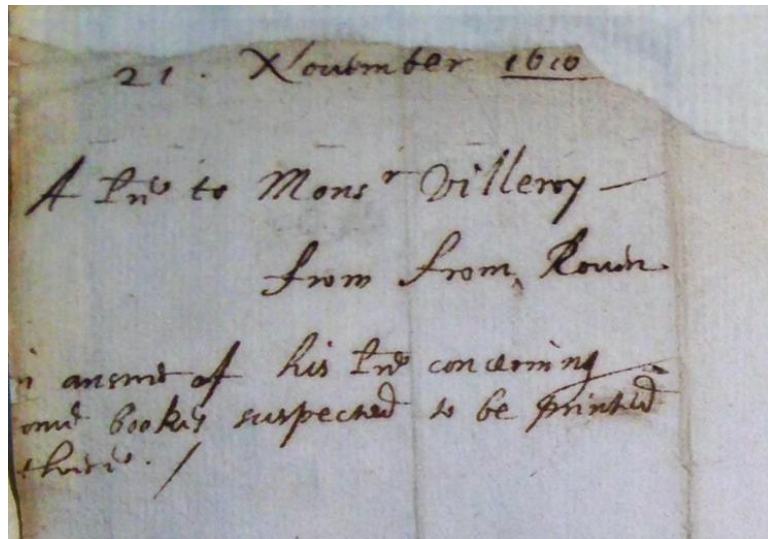 21. November 1610
A Lre to Monsr Villeroy
from from Rouen
in answer of his Lre concerning
some bookes suspected to be printed
there. /